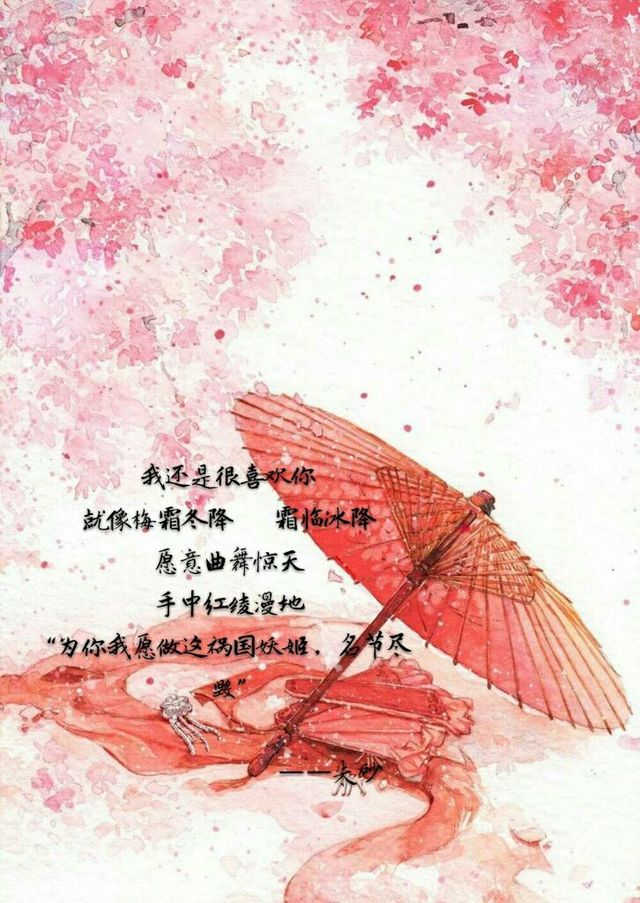 我还是很喜欢你
就像梅霜冬降 霜临冰降
愿意曲舞惊天
手中红绫漫地
“为你我愿做这祸国妖姬，名节尽
毁”
——朱妙